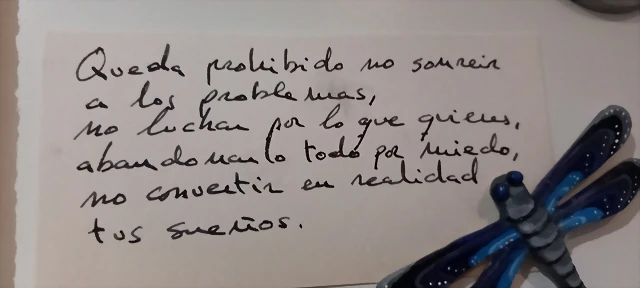 Queda prohibido no sonreir
a los problemas,
no luchar por lo que quieres,
abandonarlo todo por miedo,
no convertir en realidad
tus sueños.